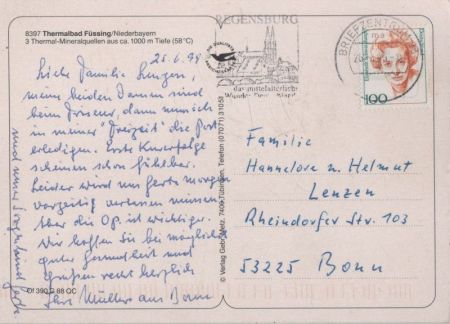 8397 Thermalbad Füssing/Niederbayern
3 Thermal-Mineralquellen aus ca. 1000 m Tiefe (58°C)
25.6.99
Liebe Familie Lenzen,
meine beiden Damen sind
beim Friseur, dann muss ich
in meiner "Freizeit" die Post
erledigen. Erste Kurerfolge
scheinen schon fühlbar.
Leider wird uns Gerta morgen
vorzeitig verlassen müssen
aber die Op. ist wichtiger.
Wir hoffen Sie bei möglichst
guter Gesundheit und
grüßen recht herzlich
Ihre Müllers aus Bonn
und unser
Gerta
Of 390 G 88 QC
© Verlag Gebr. Metz, 7400 Tübingen, Telefon (07071) 31058
REGENSBURG
das mittelalterliche
Wunder
BRIEFZENTRUM
100
Familie
Hannelore u. Helmut
Lenzen
Rheindorfer Str. 103
53225 Bonn